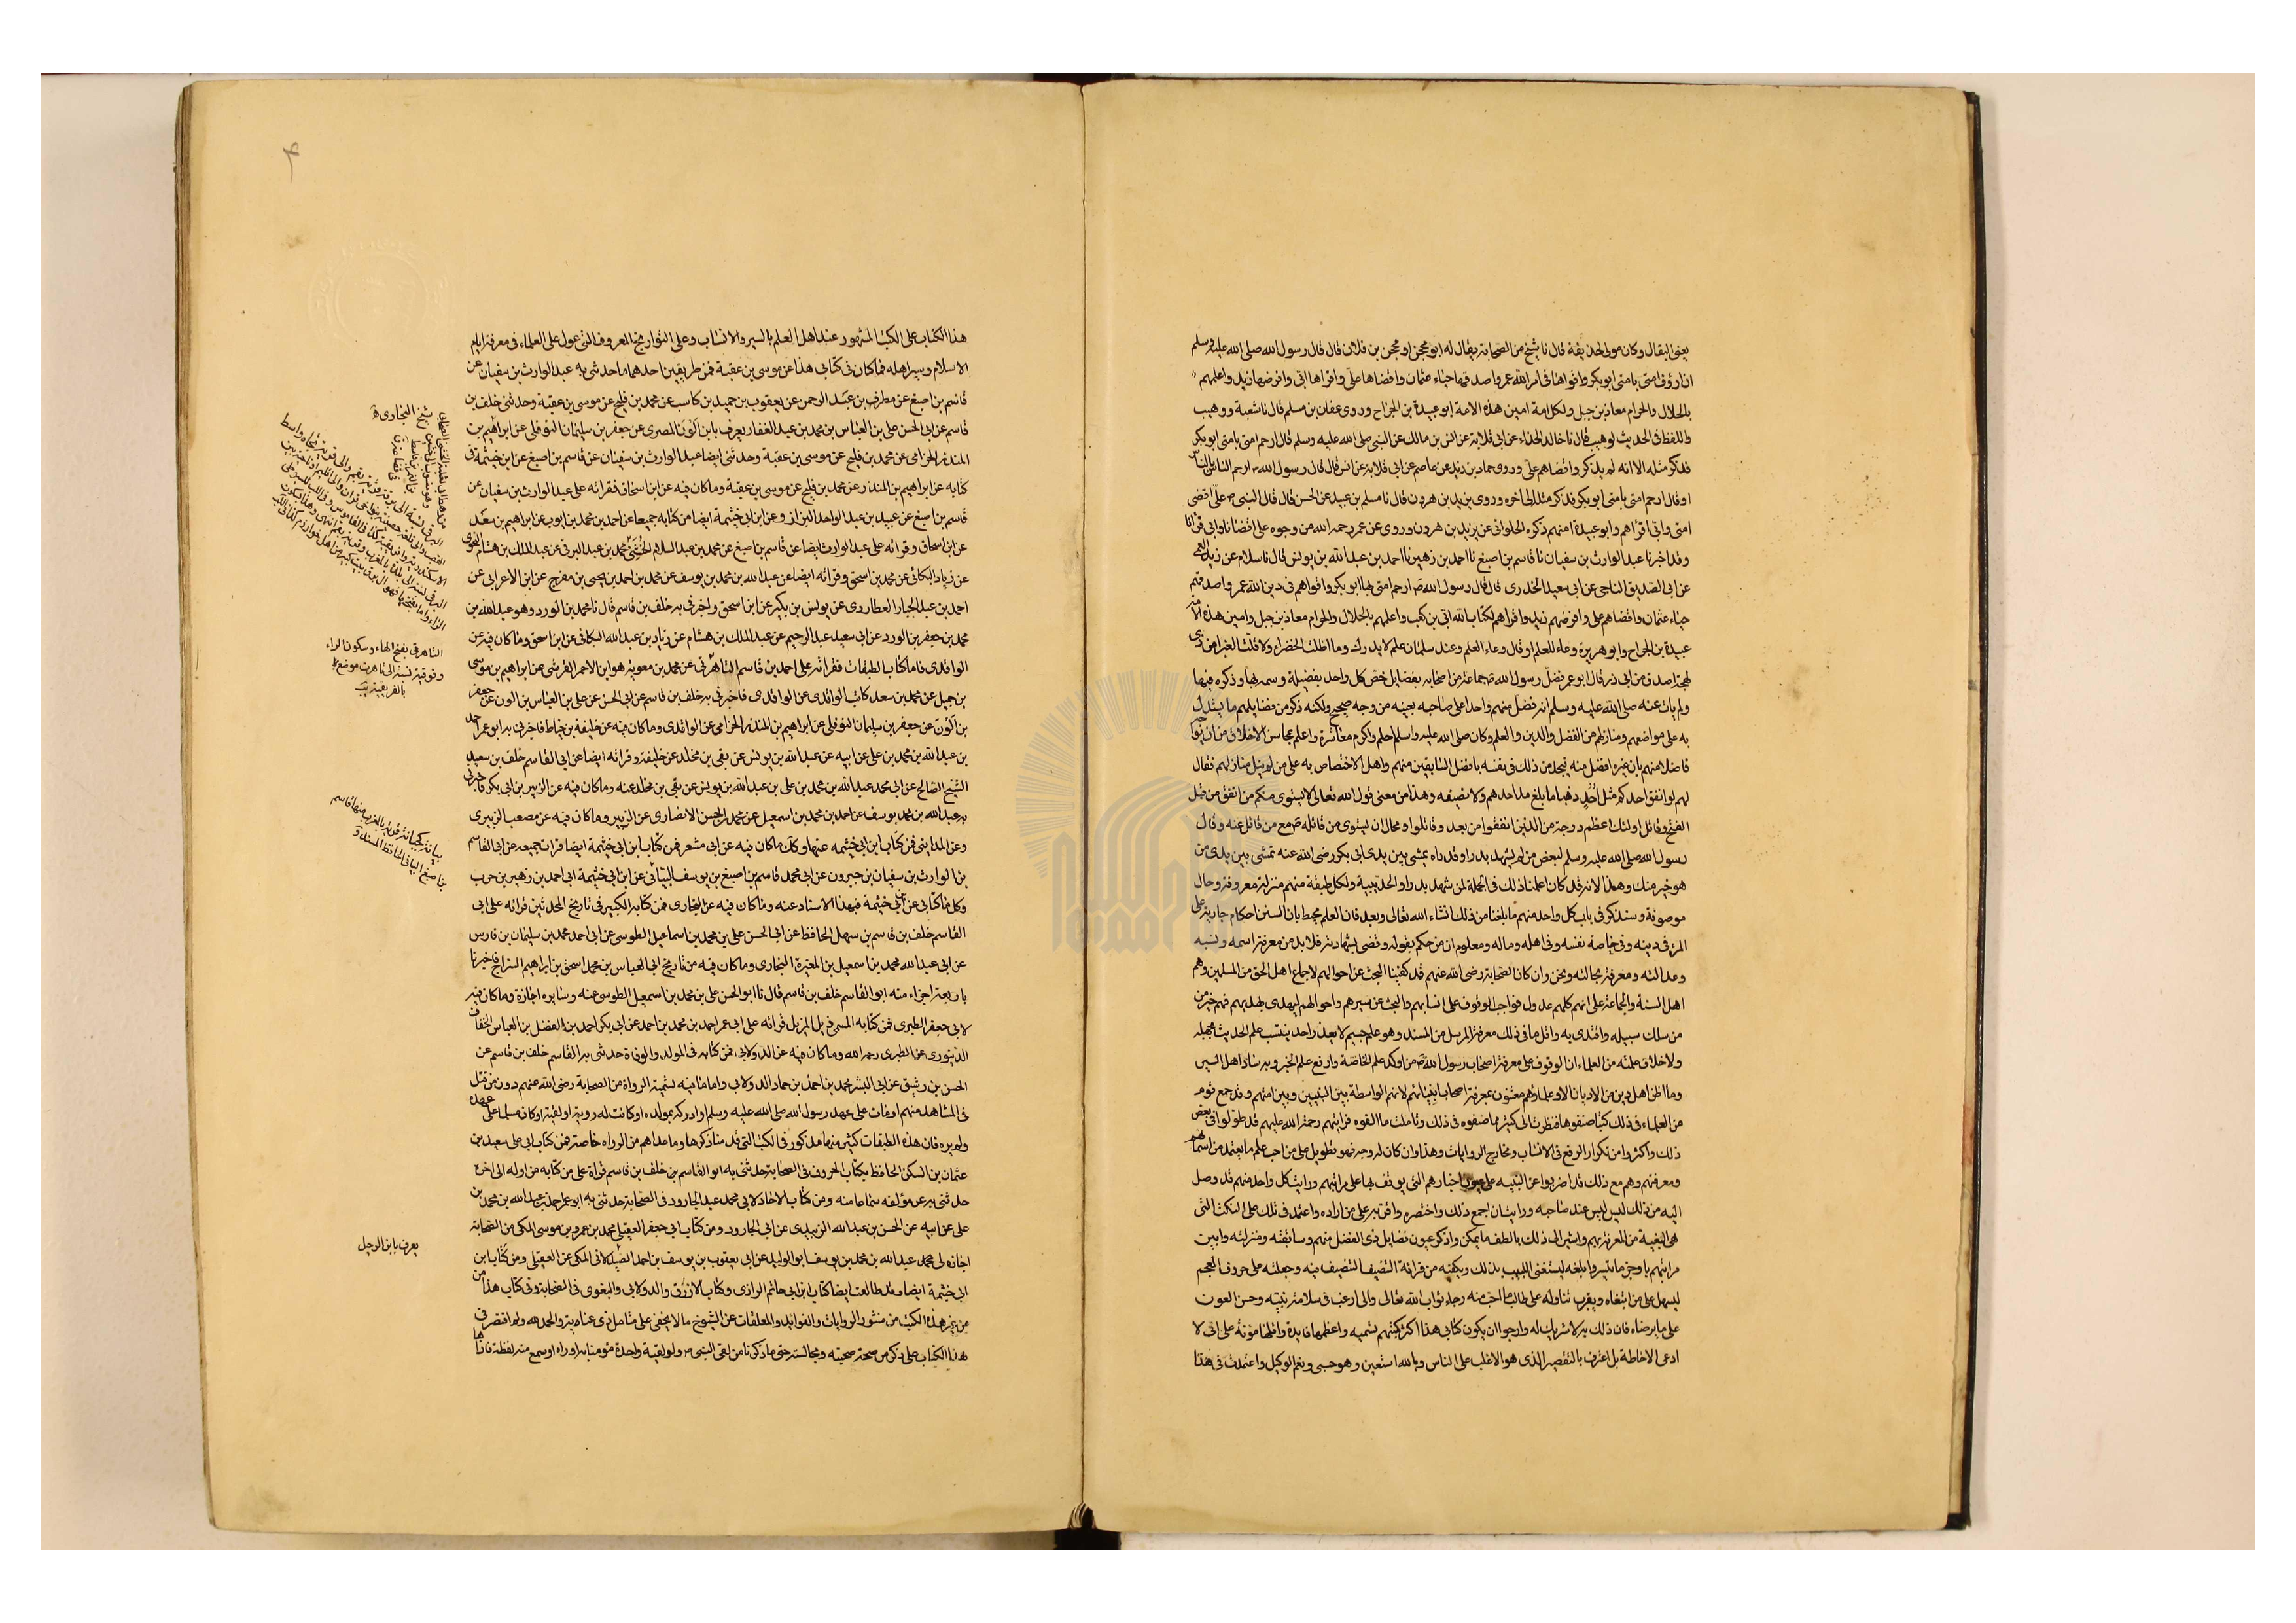 يعنى البقال وكان مولى لحذيفة قال نا شيخ من الصحابة يقال له ابو محجن او محجن بن فلان قال قال رسول الله صلى الله عليه وسلم
ان ارؤف امتى بامتى ابو بكر واقواها فى امر الله عمر واصدقها حياء عثمان واقضاها على واقراها ابى وافرضها زيد واعلمهم
بالحلال والحرام معاذ بن جبل ولكل امة امين وامين هذه الامة ابو عبيدة بن الجراح وروى عفان بن مسلم قال نا شعبة ووهيب
واللفظ فى الحديث لوهيب قال نا خالد الحذاء عن ابى قلابة عن انس بن مالك عن النبى صلى الله عليه وسلم قال ارحم امتى بامتى ابو بكر
فذكر مثله الا انه لم يذكر واقضاهم على وروى حماد بن زيد عن عاصم عن ابى قلابة عن انس قال قال رسول الله ص ارحم الناس بالناس
او قال ارحم امتى بامتى ابو بكر فذكر مثله الى اخره وروى يزيد بن هرون قال نا مسلم بن عبيد عن الحسن قال قال النبى ص على اقضى
امتى وابى اقراهم وابو عبيدة امنهم ذكره الحلوانى عن يزيد بن هرون وروى عن عمر رحمه الله من وجوه على اقضانا وابى اقرانا
وقد اخبرنا عبد الوارث بن سفيان نا قاسم بن اصبغ نا احمد بن زهير نا احمد بن عبد الله بن يونس قال نا سلام عن زيد العمى
عن ابى الصديق الناجى عن ابى سعيد الخدرى قال قال رسول الله ص ارحم امتى بها ابو بكر واقواهم فى دين الله عمر واصدقهم
حياء عثمان واقضاهم على وافرضهم زيد واقراهم لكتاب الله ابى بن كعب واعلمهم بالحلال والحرام معاذ بن جبل وامين هذه الامة
عبيدة بن الجراح وابو هريرة وعاء للعلم او قال وعاء العلم وعند سلمان علم لا يدرك وما اظلت الخضراء ولا اقلت الغبراء من ذى
لهجة اصدق من ابى ذر قال ابو عمر فضل رسول الله ص جماعة من اصحابه بفضايل خص كل واحد بفضيلة وسمه بها وذكره فيها
ولم يات عنه صلى الله عليه وسلم انه فضل منهم واحدا على صاحبه بعينه من وجه صحيح ولكنه ذكر من فضايلهم ما يستدل
به على مواضعهم ومنازلهم من الفضل والدين والعلم وكان صلى الله عليه وسلم احلم واكرم معاشرة واعلم بمحاسن الاخلاق من ان يواجه
فاضلا منهم بان غيره افضل منه فيجد من ذلك فى نفسه بل فضل السابقين منهم واهل الاختصاص به على من لم ينل منازلهم فقال
لهم لو انفق احدكم مثل احد ذهبا ما بلغ مد احدهم ولا نصيفه وهذا من معنى قول الله تعالى لا يستوى منكم من انفق من قبل
الفتح وقاتل اولئك اعظم درجة من الذين انفقوا من بعد وقاتلوا ومحال ان يستوى من قاتله ص مع من قاتل عنه وقال
رسول الله صلى الله عليه وسلم لبعض من لم يشهد بدرا وقد راه يمشى بين يدى ابى بكر رضى الله عنه تمشى بين يدى من
هو خير منك وهذا لانه قد كان اعلمنا ذلك فى الجملة لمن شهد بدرا والحديبية ولكل طبقة منهم منزلة معروفة وحال
موصوفة وسنذكر فى باب كل واحد منهم ما بلغنا من ذلك انشاء الله تعالى وبعد فان العلم محيط بان السنن احكام جارية على
المرء فى دينه وفى خاصة نفسه وفى اهله وماله ومعلوم ان من حكم بقوله وقضى بشهادته فلا بد من معرفة اسمه ونسبه
وعدالته ومعرفة بحالته ونحن وان كان الصحابة رضى الله عنهم قد كفينا البحث عن احوالهم لاجماع اهل الحق من المسلمين وهم
اهل السنة والجماعة على انهم كلهم عدول فواجب الوقوف على اسمائهم والبحث عن سيرهم واحوالهم ليهتدى بهديهم فهم خير من
من سلك سبيله واقتدى به واقل ما فى ذلك معرفة المرسل من المسند وهو علم جسيم لا يعذر احد ينسب علم الحديث بجهله
ولا خلاف علمته من العلماء ان الوقوف على معرفة اصحاب رسول الله ص من اوكد علم الخاصة وارفع علم الخبر وبه ساد اهل السير
وما اظن اهل دين من الاديان الا وعلماؤهم معتنون بمعرفة اصحاب انبيائهم لانهم الواسطة بين النبيين وبين امتهم وقد جمع قوم
من العلماء فى ذلك كتبا صنفوها فنظرت الى كثير مما صنفوه فى ذلك وتاملت ما الفوه فرايتهم رحمة الله عليهم قد طولوا فى بعض
ذلك واكثروا من تكرار الرفع فى الانساب ومخارج الروايات وهذا وان كان له وجه فهو تطويل على من احب علم ما يعتمد من اسمائهم
ومعرفتهم وهم مع ذلك قد اضربوا عن التنبيه على عيون اخبارهم التى يوقف بها على مراتبهم ورايت كل واحد منهم قد وصل
اليه من ذلك ليس عند صاحبه ورايت ان اجمع ذلك واختصره واقربه على من اراده واعتمد فى ذلك على النكت التى
هى البغية من المعرفة بهم واشير الى ذلك بالطف ما يمكن واذكر عيون فضايل ذى الفضل منهم وسابقته ومنزلته وابين
مراتبهم باوجز ما تيسر وابلغه ليستغنى اللبيب بذلك ويكفيه من قراءة التصنيف الطويل فيه وجعلته على حروف المعجم
ليسهل على من ابتغاه ويقرب تناوله على طالب ما احب منه رجاء ثواب الله تعالى والى الله ارغب فى سلامة النية وحسن العون
على ما يرضاه فان ذلك به لا شريك له وارجو ان يكون كتابى هذا اكثر كتبهم تسمية واعظمها فايدة واقلها مؤنة على انى لا
ادعى الاحاطة بل اعترف بالتقصير الذى هو الاغلب على الناس وبالله استعين وهو حسبى ونعم الوكيل واعتمدت فى هذا
هذا الكتاب على الكتب المشهور عند اهل العلم بالسير والانساب وعلى التواريخ المعروفة التى عول على العلماء فى معرفة ايام
الاسلام وسير اهله فما كان فى كتابى هذا عن موسى بن عقبة فمن طريقين احدهما ما حدثنى به عبد الوارث بن سفيان عن
قاسم بن اصبغ عن مطرف بن عبد الرحمن عن يعقوب بن حميد بن كاسب عن محمد بن فليح عن موسى بن عقبة وحدثنى خلف بن
قاسم عن ابى الحسن على بن العباس بن محمد بن عبد الغفار يعرف بابن الون المصرى عن جعفر بن سليمان النوفلى عن ابراهيم بن
المنذر الحزامى عن محمد بن فليح عن موسى بن عقبة وحدثنى ايضا عبد الوارث بن سفيان عن قاسم بن اصبغ عن ابن خيثمة فى
كتابه عن ابراهيم بن المنذر عن محمد بن فليح عن موسى بن عقبة وما كان فيه عن ابن اسحاق فقراته على عبد الوارث بن سفيان عن
قاسم بن اصبغ عن عبيد بن عبد الواحد البزاز وعن ابن ابى خيثمة ايضا من كتابه جميعا عن احمد بن محمد بن ايوب عن ابراهيم بن سعد
عن ابن اسحاق وقراته على عبد الوارث ايضا عن قاسم بن اصبغ عن محمد بن عبد السلام الخشنى محمد بن عبد البرقى عن عبد الملك بن هشام النحوى
عن زياد البكائى عن محمد بن اسحق وقراته ايضا عن عبد الله بن محمد بن يوسف عن محمد بن احمد بن يحيى بن مفرج عن ابن الاعرابى عن
احمد بن عبد الجبار العطاردى عن يونس بن بكير عن ابن اسحق واخبرنى به خلف بن قاسم قال نا محمد بن الورد وهو عبد الله بن
محمد بن جعفر بن الورد عن ابى سعيد عبد الرحيم عن عبد الملك بن هشام عن زياد بن عبد الله البكائى عن ابن اسحق وما كان فيه عن
الواقدى فاما كتاب الطبقات فقراته على احمد بن قاسم التاهرتى عن محمد بن معوية هو ابن الاحمر القرشى عن ابراهيم بن موسى
بن جميل عن محمد بن سعد كاتب الواقدى عن الواقدى فاخبرنى به خلف بن قاسم عن ابى الحسن عن على بن العباس بن الون عن جعفر
بن الون عن جعفر بن سليمان النوفلى عن ابراهيم بن المنذر الحزامى عن الواقدى وما كان فيه عن خليفة بن خياط فاخبرنى به ابو عمر احمد
بن عبد الله بن محمد بن على عن ابيه عن عبد الله بن يونس عن بقى بن مخلد عن خليفة وقراته ايضا عن ابى القاسم خلف بن سعيد
الشيخ الصالح عن ابى محمد عبد الله بن محمد بن على بن عبد الله بن يونس عن بقى بن مخلد عنه وما كان فيه عن الزبير بن ابى بكر فاخبرنى
به عبد الله بن محمد يوسف عن احمد بن محمد بن اسمعيل عن محمد بن الحسن الانصارى عن الزبير وما كان فيه عن مصعب الزبيرى
وعن المداينى فمن كتاب ابن ابى خيثمه عنها وكل ما كان فيه عن ابى معشر فمن كتاب ابن ابى خيثمة ايضا قرات جميعه عن ابى القاسم
بن الوارث بن سفيان بن جبرون عن ابى محمد قاسم بن اصبغ بن يوسف البيانى عن ابن ابى خيثمة ابى احمد بن زهير بن حرب
وكل ما كتابى عن ابن ابى خيثمة فبهذا الاسناد عنه وما كان فيه عن البخارى فمن كتابه الكبير فى تاريخ المحدثين قراته على ابى
القاسم خلف بن قاسم بن سهل الحافظ عن ابى الحسن على بن محمد بن اسماعيل الطوسى عن ابى احمد محمد بن سليمان بن فارس
عن ابى عبد الله محمد بن اسمعيل بن المغيرة البخارى وما كان فيه من تاريخ ابى العباس بن محمد اسحق بن ابراهيم السراج فاخبرنا
باربعة اجزاء منه ابو القاسم خلف بن قاسم قال نا ابو الحسن على بن محمد بن اسمعيل الطوسى عنه وسايره اجازة وما كان فيه
لابى جعفر الطبرى فمن كتابه المسمى ذيل المزيل قراته على ابى عمر احمد بن محمد بن احمد عن ابى بكر احمد بن الفضل بن العباس الخفاف
الدينورى عن الطبرى رحمه الله وما كان فيه عن الدولابى فمن كتابه فى المولد والوفاة حدثنى به القاسم خلف بن قاسم عن
الحسن بن رشيق عن ابى البشر محمد بن احمد بن حماد الدولابى واما ما فيه تسمية الرواة من الصحابة رضى الله عنهم دون من قتل
فى المشاهد منهم او مات على عهد رسول الله صلى الله عليه وسلم او ادركه بمولده او كانت له روية او لقية او كان مسلما على عهده
ولم يره فان هذه الطبقات كثير منها مذكور فى الكتب التى قدمنا ذكرها وما عداهم من الرواه خاصة فمن كتاب ابى على سعيد بن
عثمان بن السكن الحافظ بكتاب الحروف فى الصحابة حدثنى به ابو القاسم بن خلف بن قاسم قراة على من كتابه من اوله الى اخره
حدثنى به عن مؤلفه سماعا منه ومن كتاب الاحاد لابى محمد عبد الجارود فى الصحابة حدثنى به ابو عمر احمد بن عبد الله بن محمد بن
على عن ابيه عن الحسن بن عبد الله الزبيدى عن ابى الجارود ومن كتاب ابى جعفر العقيلى محمد بن عمرو بن موسى المكى من الصحابة
اجازه لى محمد عبد الله بن محمد بن يوسف ابو الوليد عن ابى يعقوب بن يوسف بن احمد الصيدلانى المكى عن العقيلى ومن كتاب ابن
ابى خيثمة ايضا وقد طالعت ايضا كتاب ابن ابى حاتم الرازى وكتاب الازرق والدولابى والبغوى فى الصحابة وفى كتاب هذا من
من غير هذه الكتب من منثور الروايات والفوائد والمعلقات عن الشيوخ ما لا يخفى على متامل ذى عناية والحمد لله ولم اقتصر فى
هذا الكتاب على ذكر من صحت صحبته ومجالسته حتى ما ذكرنا من لقى النبى ص ولو لقية واحدة مؤمنا به او راه او سمع منه لفظة فاداها
التاهرتى بفتح الهاء وسكون الراء
وفوقية نسبة الى تاهرت موضع
بافريقية
بيانة قرية بالمغرب منها قاسم
بن اصبغ البيانى الحافظ المسند
يعرف بابن الوجل